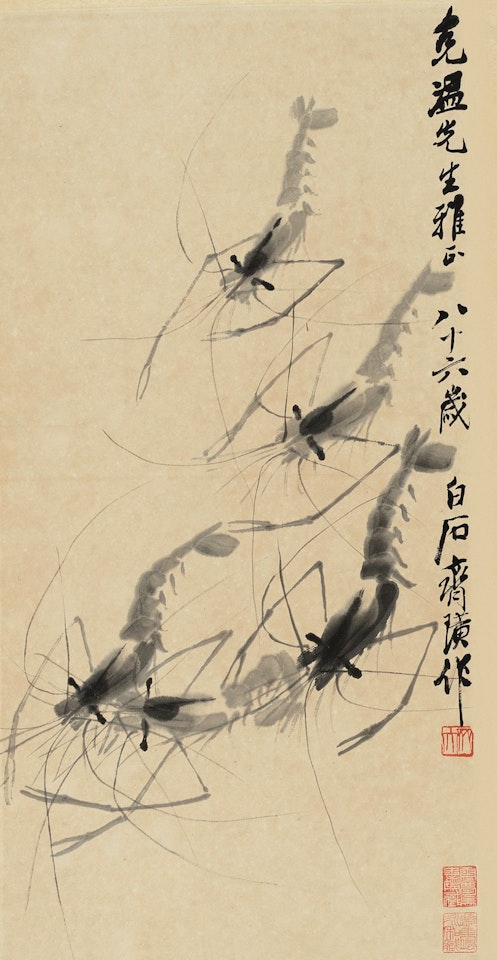 克溫先生雅正 八十六歲 白石齊璜作